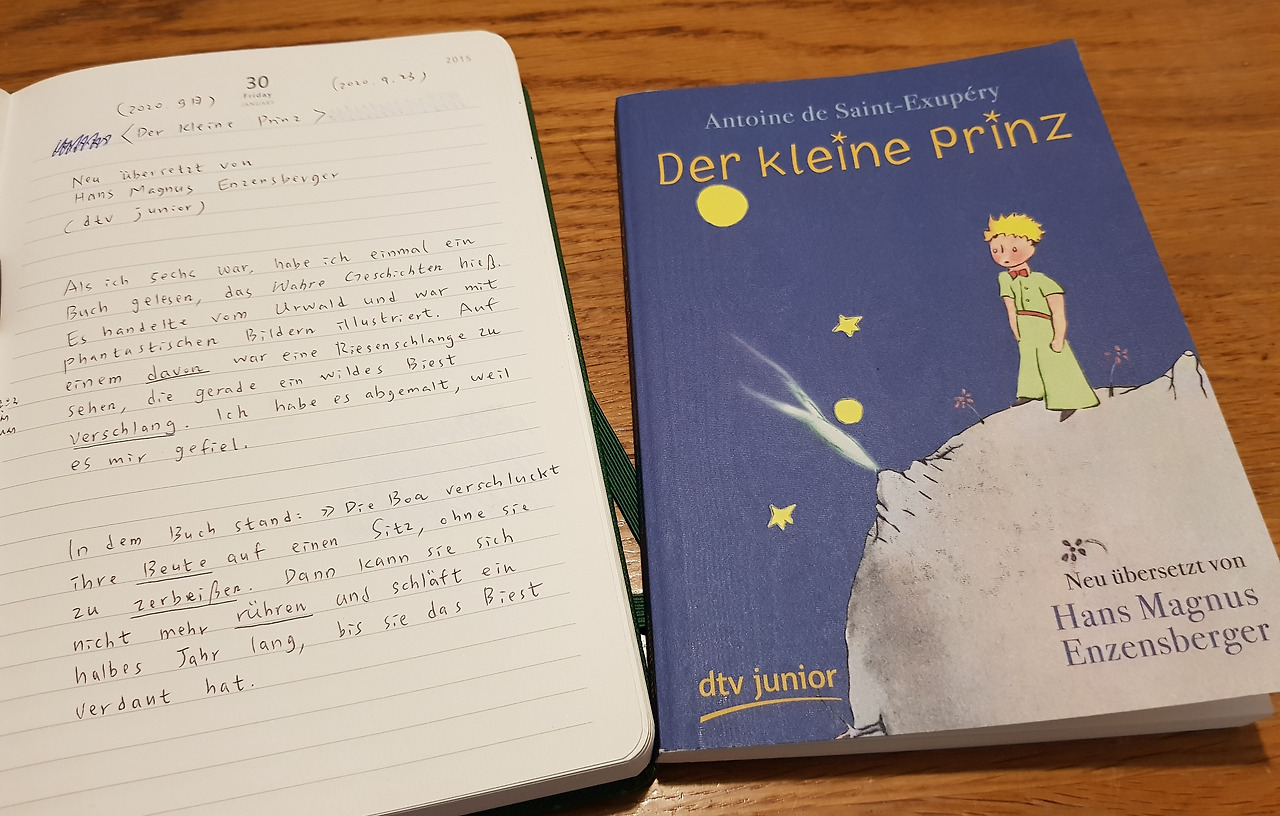 2015
30
Friday
JANUARY
(2020. 9.23)
(2020 9.17)
<Der kleine Prinz>
Neu übersetzt von
Hans Magnus Enzensberger
(dtv junior)
Als ich sechs war, habe ich einmal ein
Buch gelesen, das Wahre Geschichten hieß.
Es handelte vom Urwald und war mit
phantastischen Bildern illustriert. Auf
einem davon war eine Riesenschlange zu
sehen, die gerade ein wildes Biest
verschlang. Ich habe es abgemalt, weil
es mir gefiel.
In dem Buch stand: » Die Boa verschluckt
ihre Beute auf einen Sitz, ohne sie
zu zerbeißen. Dann kann sie sich
nicht mehr rühren und schläft ein
halbes Jahr lang, bis sie das Biest
verdaut hat.
Antoine de Saint-Exupéry
Der kleine Prinz
Neu übersetzt von
Hans Magnus
Enzensberger
dtv junior